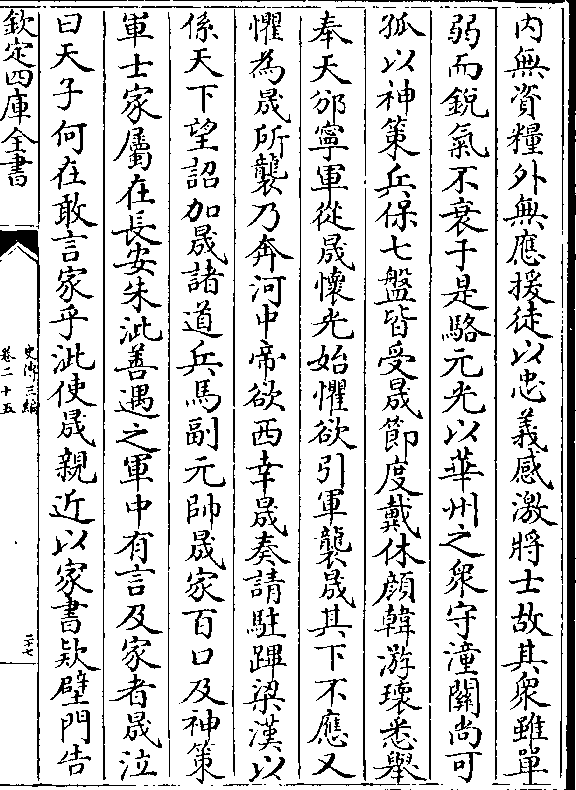 內無資糧外無應援徒以忠義感激將士故其衆雖單
弱而銳氣不衰于是駱元光以華州之衆守潼關尚可
孤以神策兵保七盤皆受晟節度戴休顔韓游瓌悉舉
奉天邠寧軍從晟懷光始懼欲引軍襲晟其下不應又
懼為晟所襲乃奔河中帝欲西幸晟奏請駐蹕梁漢以
係天下望詔加晟諸道兵馬副元帥晟家百口及神策
軍士家屬在長安朱泚善遇之軍中有言及家者晟泣
曰天子何在敢言家乎泚使晟親近以家書欵壁門告
欽定四庫全書
史傳三編
卷二十五
二七